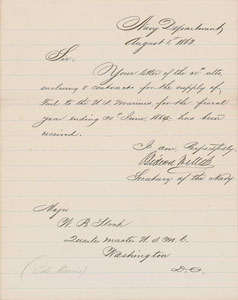 Navy Department,
August 1st 1863.
Sir.
Your letter of the 30th ulto,
enclosing 2 contracts for the supply of
Fuel to the U.S. Marines for the fiscal
year ending 30th June, 1864, has been
received.
I am, Respectfully,
Gideon Welles
Secretary of the Navy
Major
W. B. Slack
Quarter master U.S.M.C.
Washington
D.C.